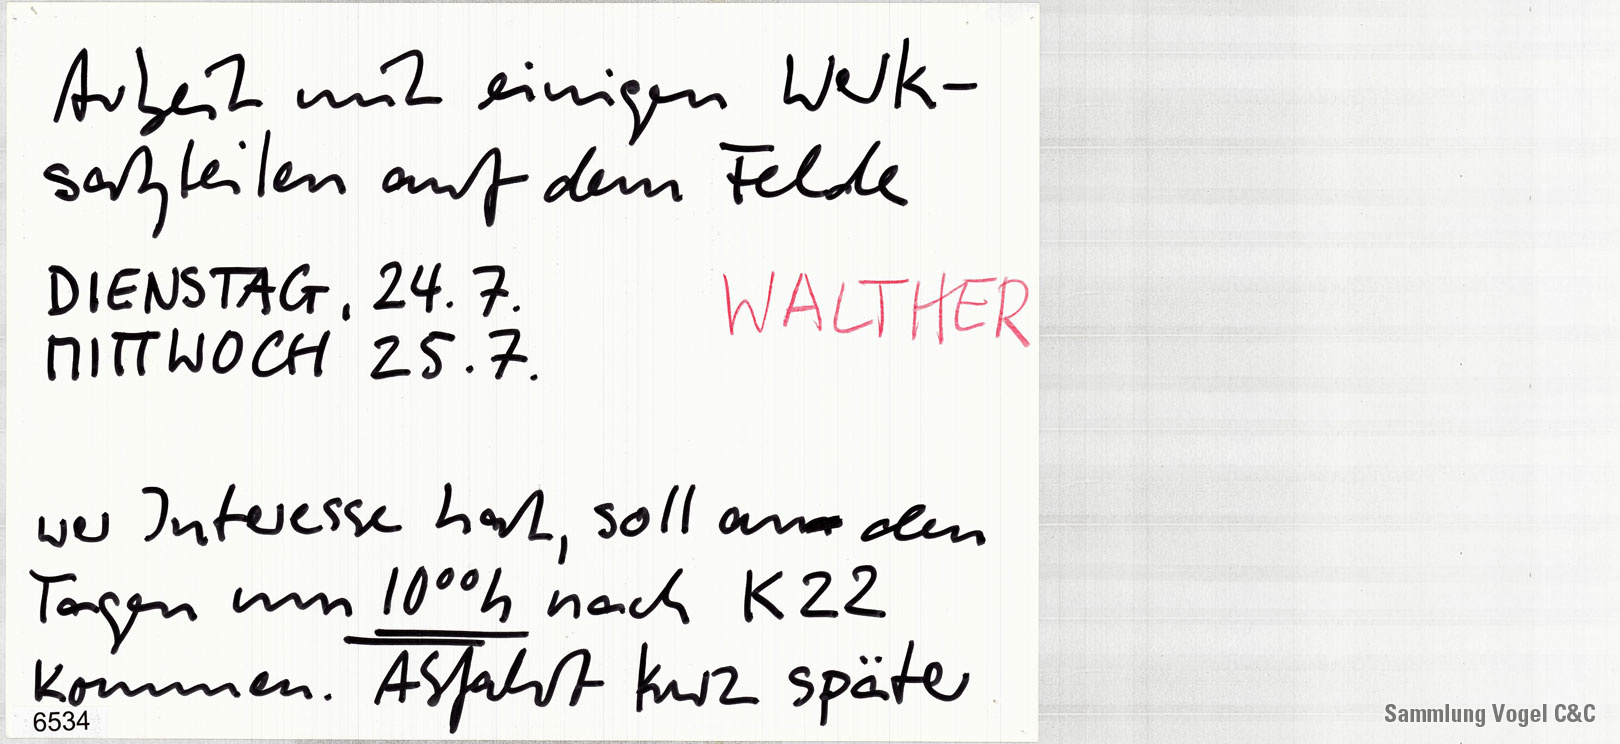 Arbeit mit einigen Werk-
satzteilen auf dem Felde
DIENSTAG, 24.7.
WALTHER
MITTWOCH 25.7.
wer Interesse hat, soll an den
Tagen um 10⁰⁰h nach K22
kommen. Abfahrt kurz später
6534
Sammlung Vogel C&C